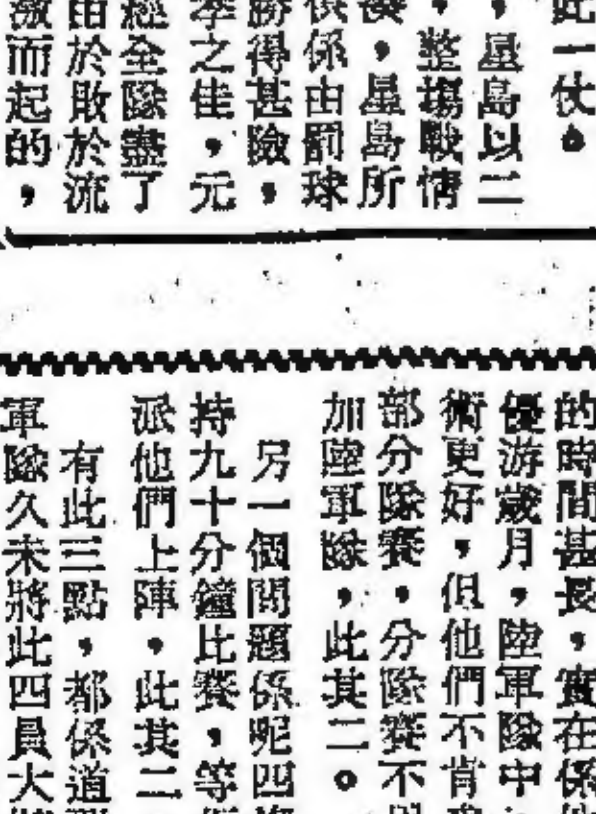 此一伏。
，星島以二
，整場戰情
湊，星島所
係由罰球
勝得甚險，
季之佳，元
經全隊盡了
由於敗於流
激而起的，
的時間甚長，實在係
優游歲月，陸軍隊中
術更好，但他們不肯
部分隊賽，分隊賽不
加陸軍隊，此其二。
另一個問題係呢四
持九十分鐘比賽，等
派他們上陣，此其二
有此三點，都係道
軍隊久未將此四員大